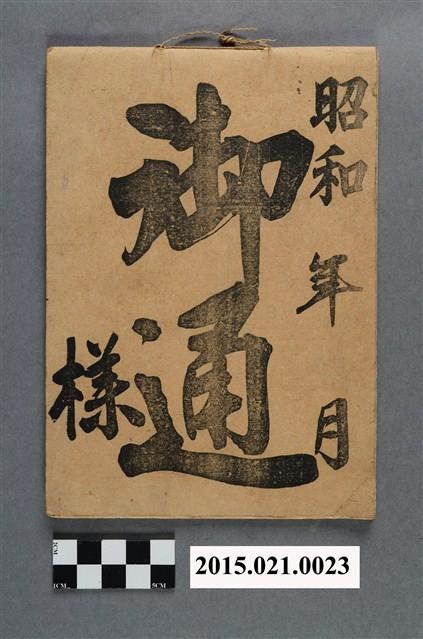 昭和 年 月
御通
様
2CM
1CM
5CM
2015.021.0023